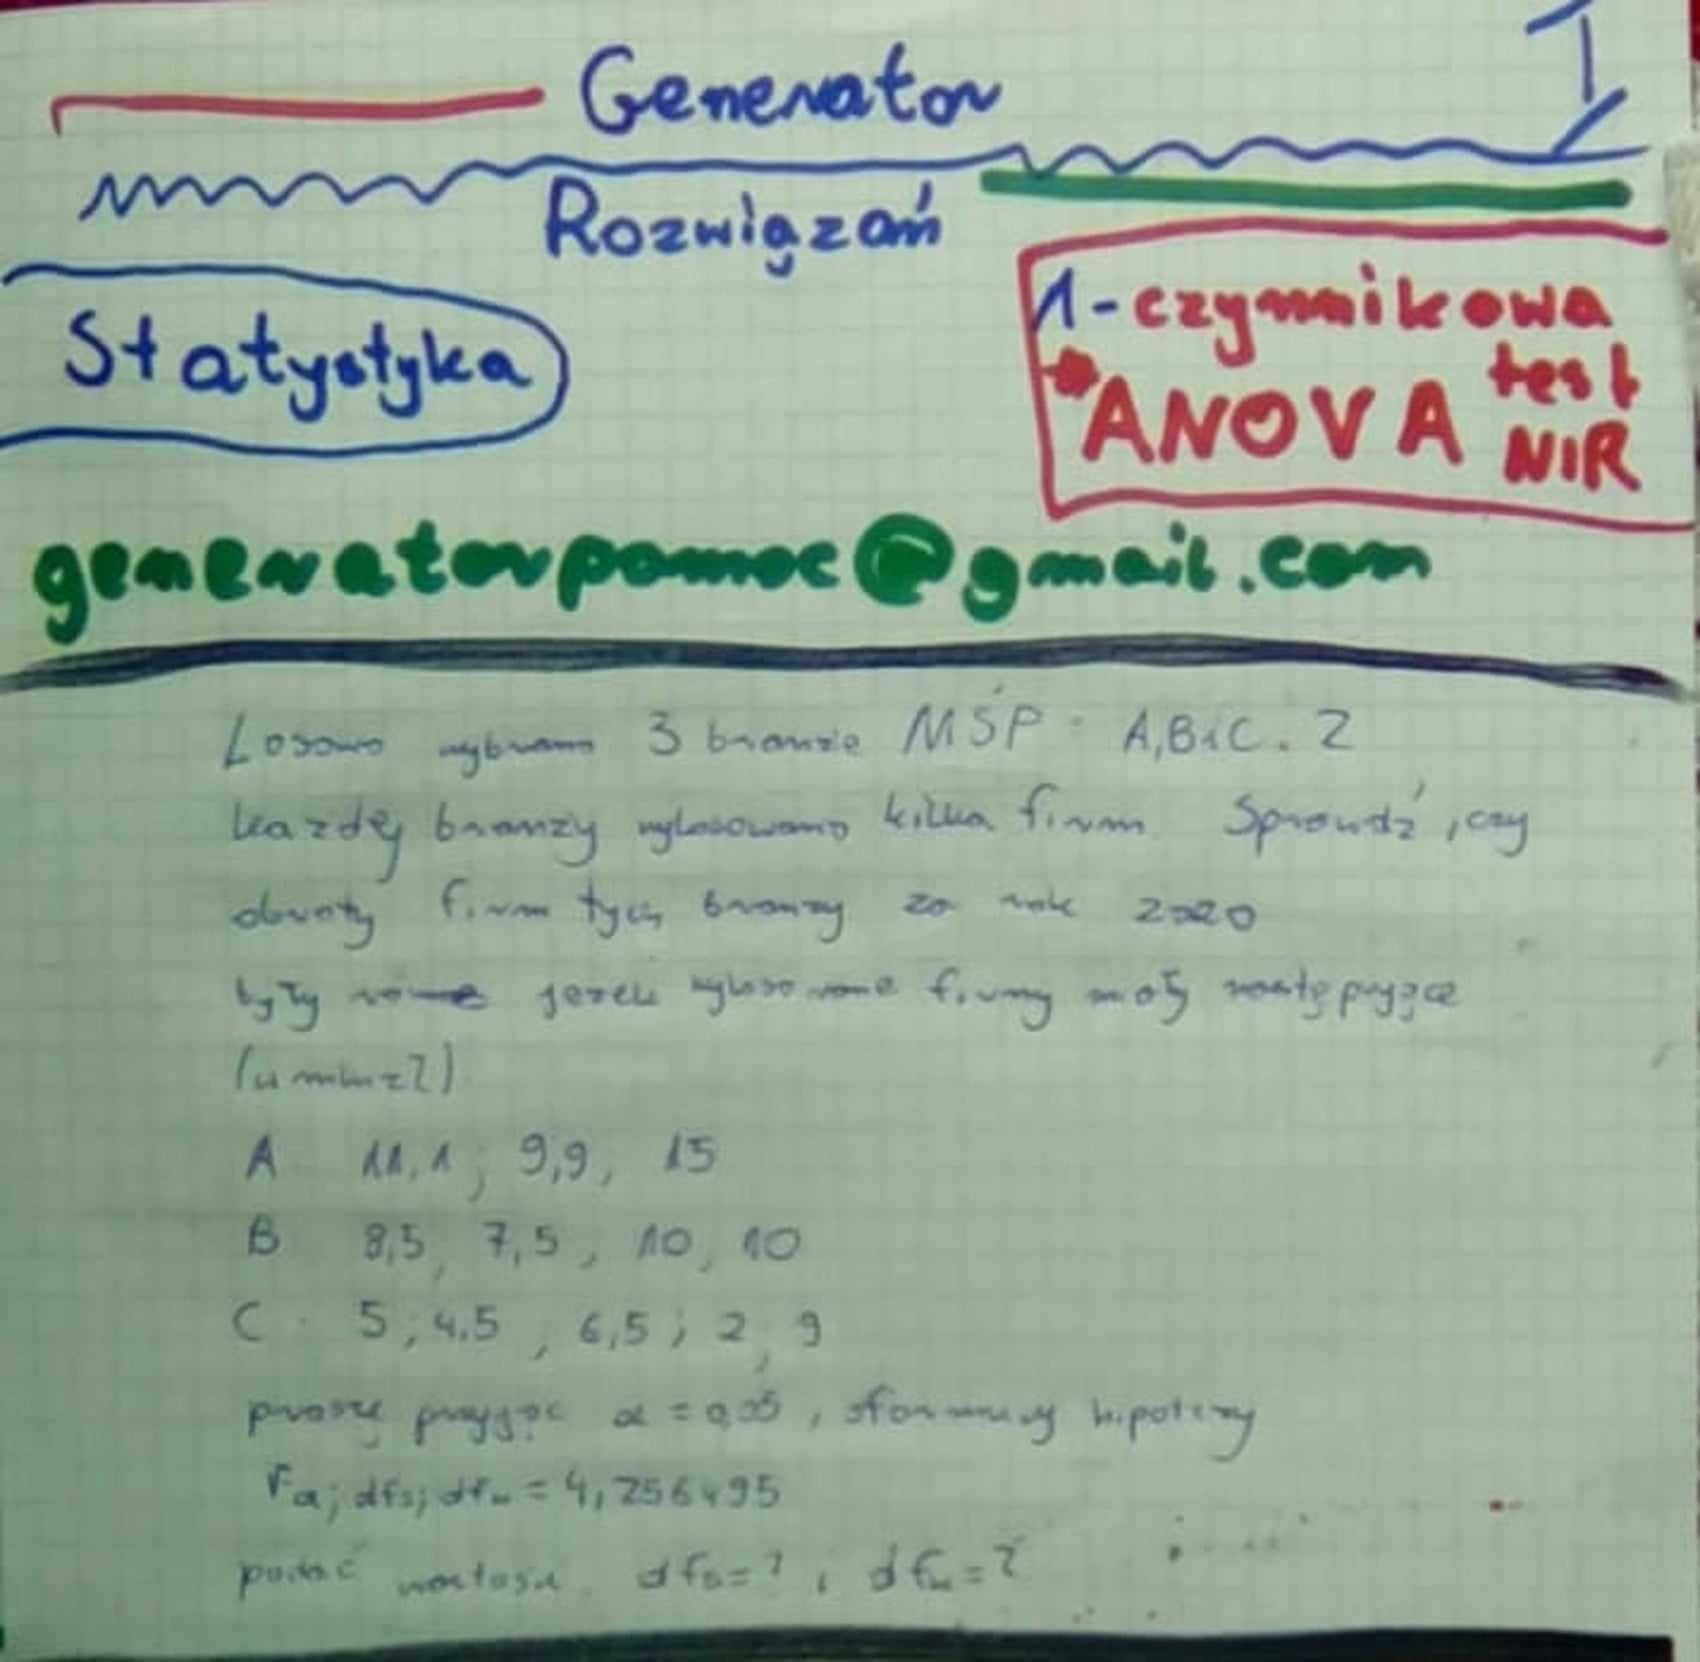 Generator I
Rozwiązań
Statystyka
1-czynnikowa
ANOVA test
NIR
generatorpomoc@gmail.com
Losowo wybrano 3 branże MŚP: A, B i C. Z
każdej branży wylosowano kilka firm. Sprawdź, czy
obroty firm tych branży za rok 2020
były równe jeżeli wylosowane firmy miały następujące
(w mln zł)
A 11,1; 9,9, 15
B 8,5, 7,5, 10, 10
C. 5; 4,5, 6,5; 2, 9
proszę przyjąć α = 0,05, sformułuj hipotezy
Fα; dfs; dfw = 4,256495
podać wartości. dfs=?, dfw=?